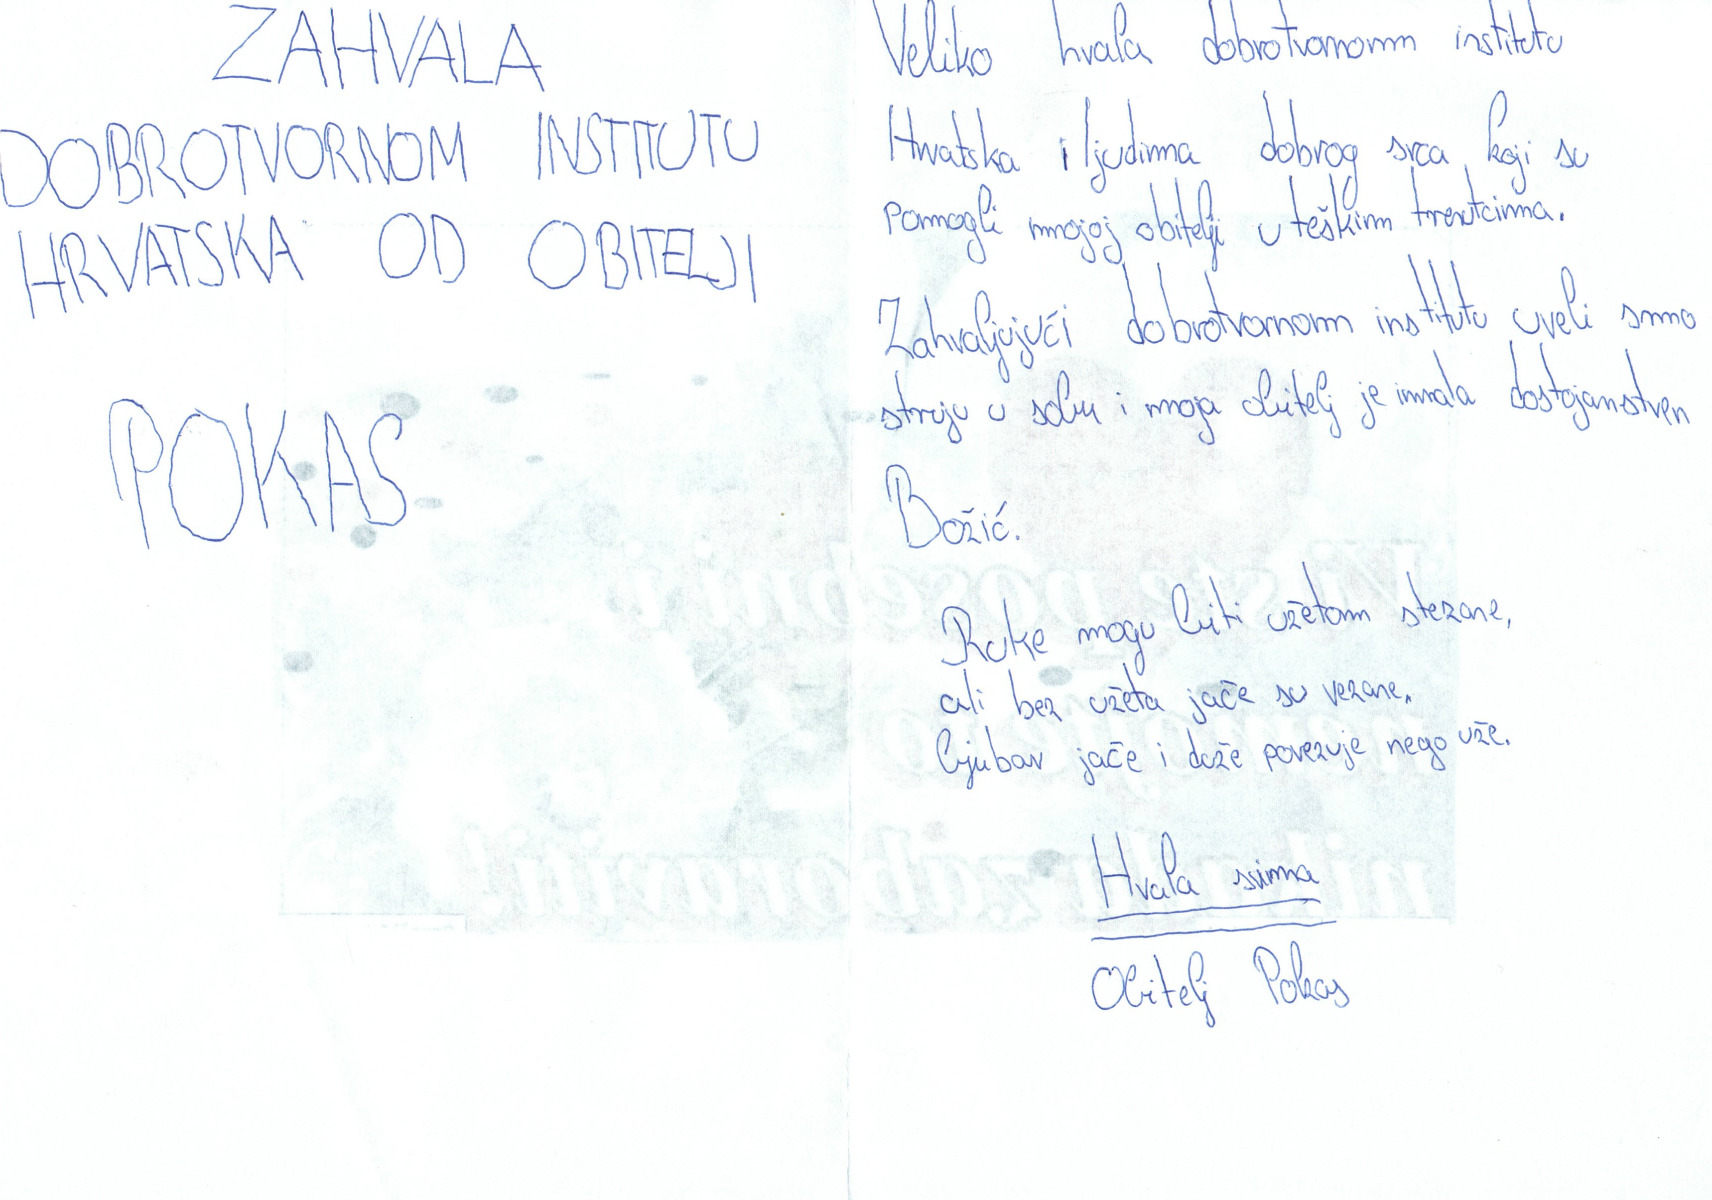 ZAHVALA
DOBROTVORNOM INSTITUTU
HRVATSKA OD OBITELJI
POKAS
Veliko hvala dobrotvornom institutu
Hrvatska i ljudima dobrog srca, koji su
pomogli mojoj obitelji u teškim trenutcima.
Zahvaljujući dobrotvornom institutu uveli smo
struju u sobu i moja obitelj je imala dostojanstven
Božić.
Ruke mogu biti užetom stezane,
ali bez užeta jače su vezane.
Ljubav jače i duže povezuje nego uže.
Hvala svima
Obitelj Pokas